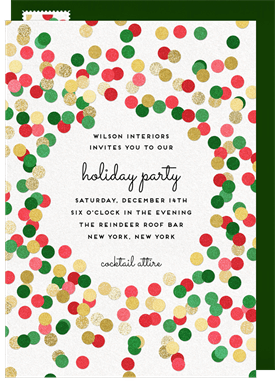 WILSON INTERIORS
INVITES YOU TO OUR
holiday party
SATURDAY, DECEMBER 14TH
SIX O'CLOCK IN THE EVENING
THE REINDEER ROOF BAR
NEW YORK, NEW YORK
cocktail attire